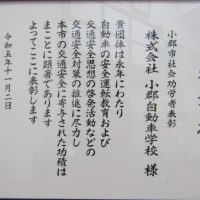 小郡市社会功労者表彰
株式会社 小郡自動車学校 様
貴団体は永年にわたり
自動車の安全運転教育および
交通安全思想の啓発活動などの
交通安全対策の推進に尽力し
本市の交通安全に寄与された功績は
まことに顕著であります
よってここに表彰します
令和五年十一月二日